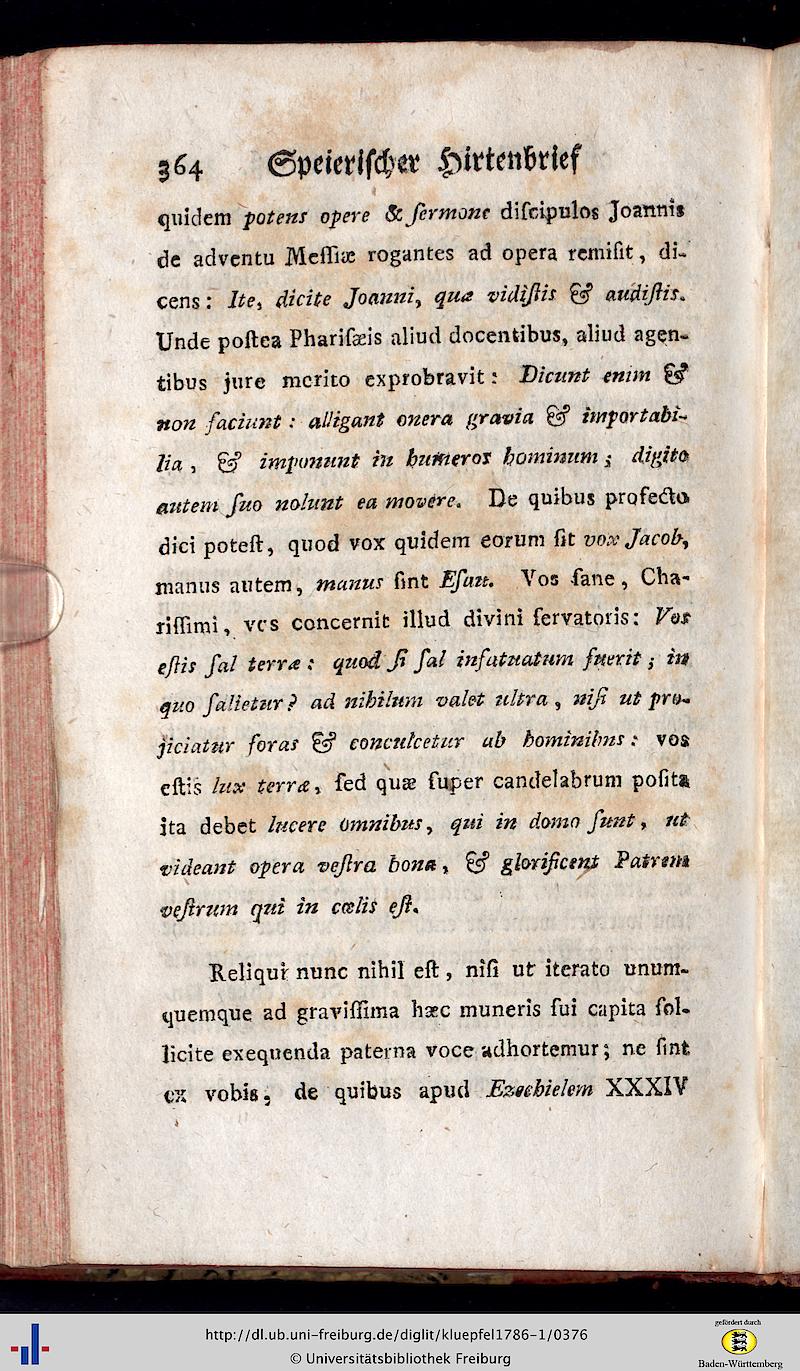 364 Speierischer Hirtenbrief
quidem potens opere & ſermone diſcipulos Joannis
de adventu Meſſiæ rogantes ad opera remiſit, di-
cens: Ite, dicite Joanni, quæ vidiſtis & audiſtis.
Unde poſtea Phariſæis aliud docentibus, aliud agen-
tibus jure merito exprobravit: Dicunt enim &
non faciunt: alligant onera gravia & importabi-
lia, & imponunt in humeros hominum; digito
autem ſuo nolunt ea movere. De quibus profecto
dici poteſt, quod vox quidem eorum ſit vox Jacob,
manus autem, manus ſint Eſau. Vos ſane, Cha-
riſſimi, vos concernit illud divini ſervatoris: Vos
eſtis ſal terræ: quod ſi ſal infatuatum fuerit; in
quo ſalietur? ad nihilum valet ultra, niſi ut pro-
jiciatur foras & conculcetur ab hominibus: vos
eſtis lux terræ, ſed quæ ſuper candelabrum poſita
ita debet lucere omnibus, qui in domo ſunt, ut
videant opera veſtra bona, & glorificent Patrem
veſtrum qui in cœlis eſt.
Reliqui nunc nihil eſt, niſi ut iterato unum-
quemque ad graviſſima hæc muneris ſui capita ſol-
licite exequenda paterna voce adhortemur; ne ſint
ex vobis, de quibus apud Ezechielem XXXIV
http://dl.ub.uni-freiburg.de/diglit/kluepfel1786-1/0376
© Universitätsbibliothek Freiburg
gefördert durch
Baden-Württemberg